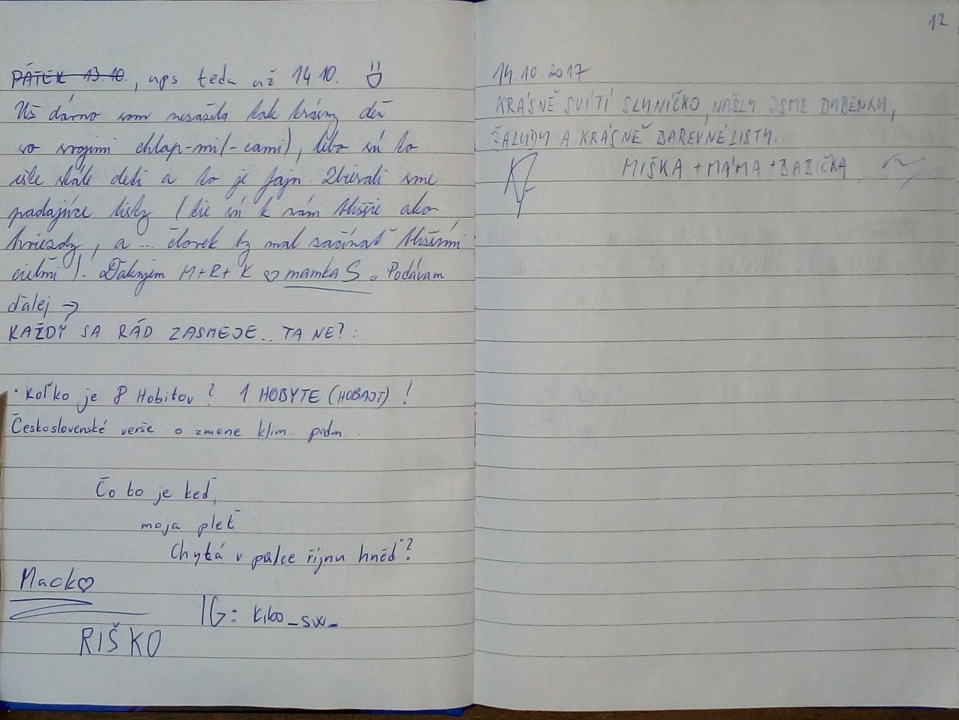 PÁTEK 13.10., ups teda už 14.10.
Už dávno som nezažila tak krásny deň
so svojimi chlap-mi(-cami), lebo sú to
ešte stále deti a to je fajn. Zbierali sme
padajúce listy (tie sú k nám bližšie ako
hviezdy, a ... človek by mal začínať bližšími
cieľmi)! Ďakujem M+R+K ♡ mamka S. Podávam
ďalej →
KAŽDÝ SA RÁD ZASMEJE.. TA NE?:
• Koľko je 8 Hobitov? 1 HOBYTE (HOBAJT)!
Československé verše o zmene klim. podm.
Čo to je keď,
moja pleť
Chytá v půlce října hněď?
Mack♡
IG: kibo_sw_
RIŠKO
12
14.10.2017
KRÁSNĚ SVÍTÍ SLUNÍČKO, NAŠLY JSME DUBĚNKY,
ŽALUDY A KRÁSNĚ BAREVNÉ LISTY.
MIŠKA + MÁMA + BABIČKA